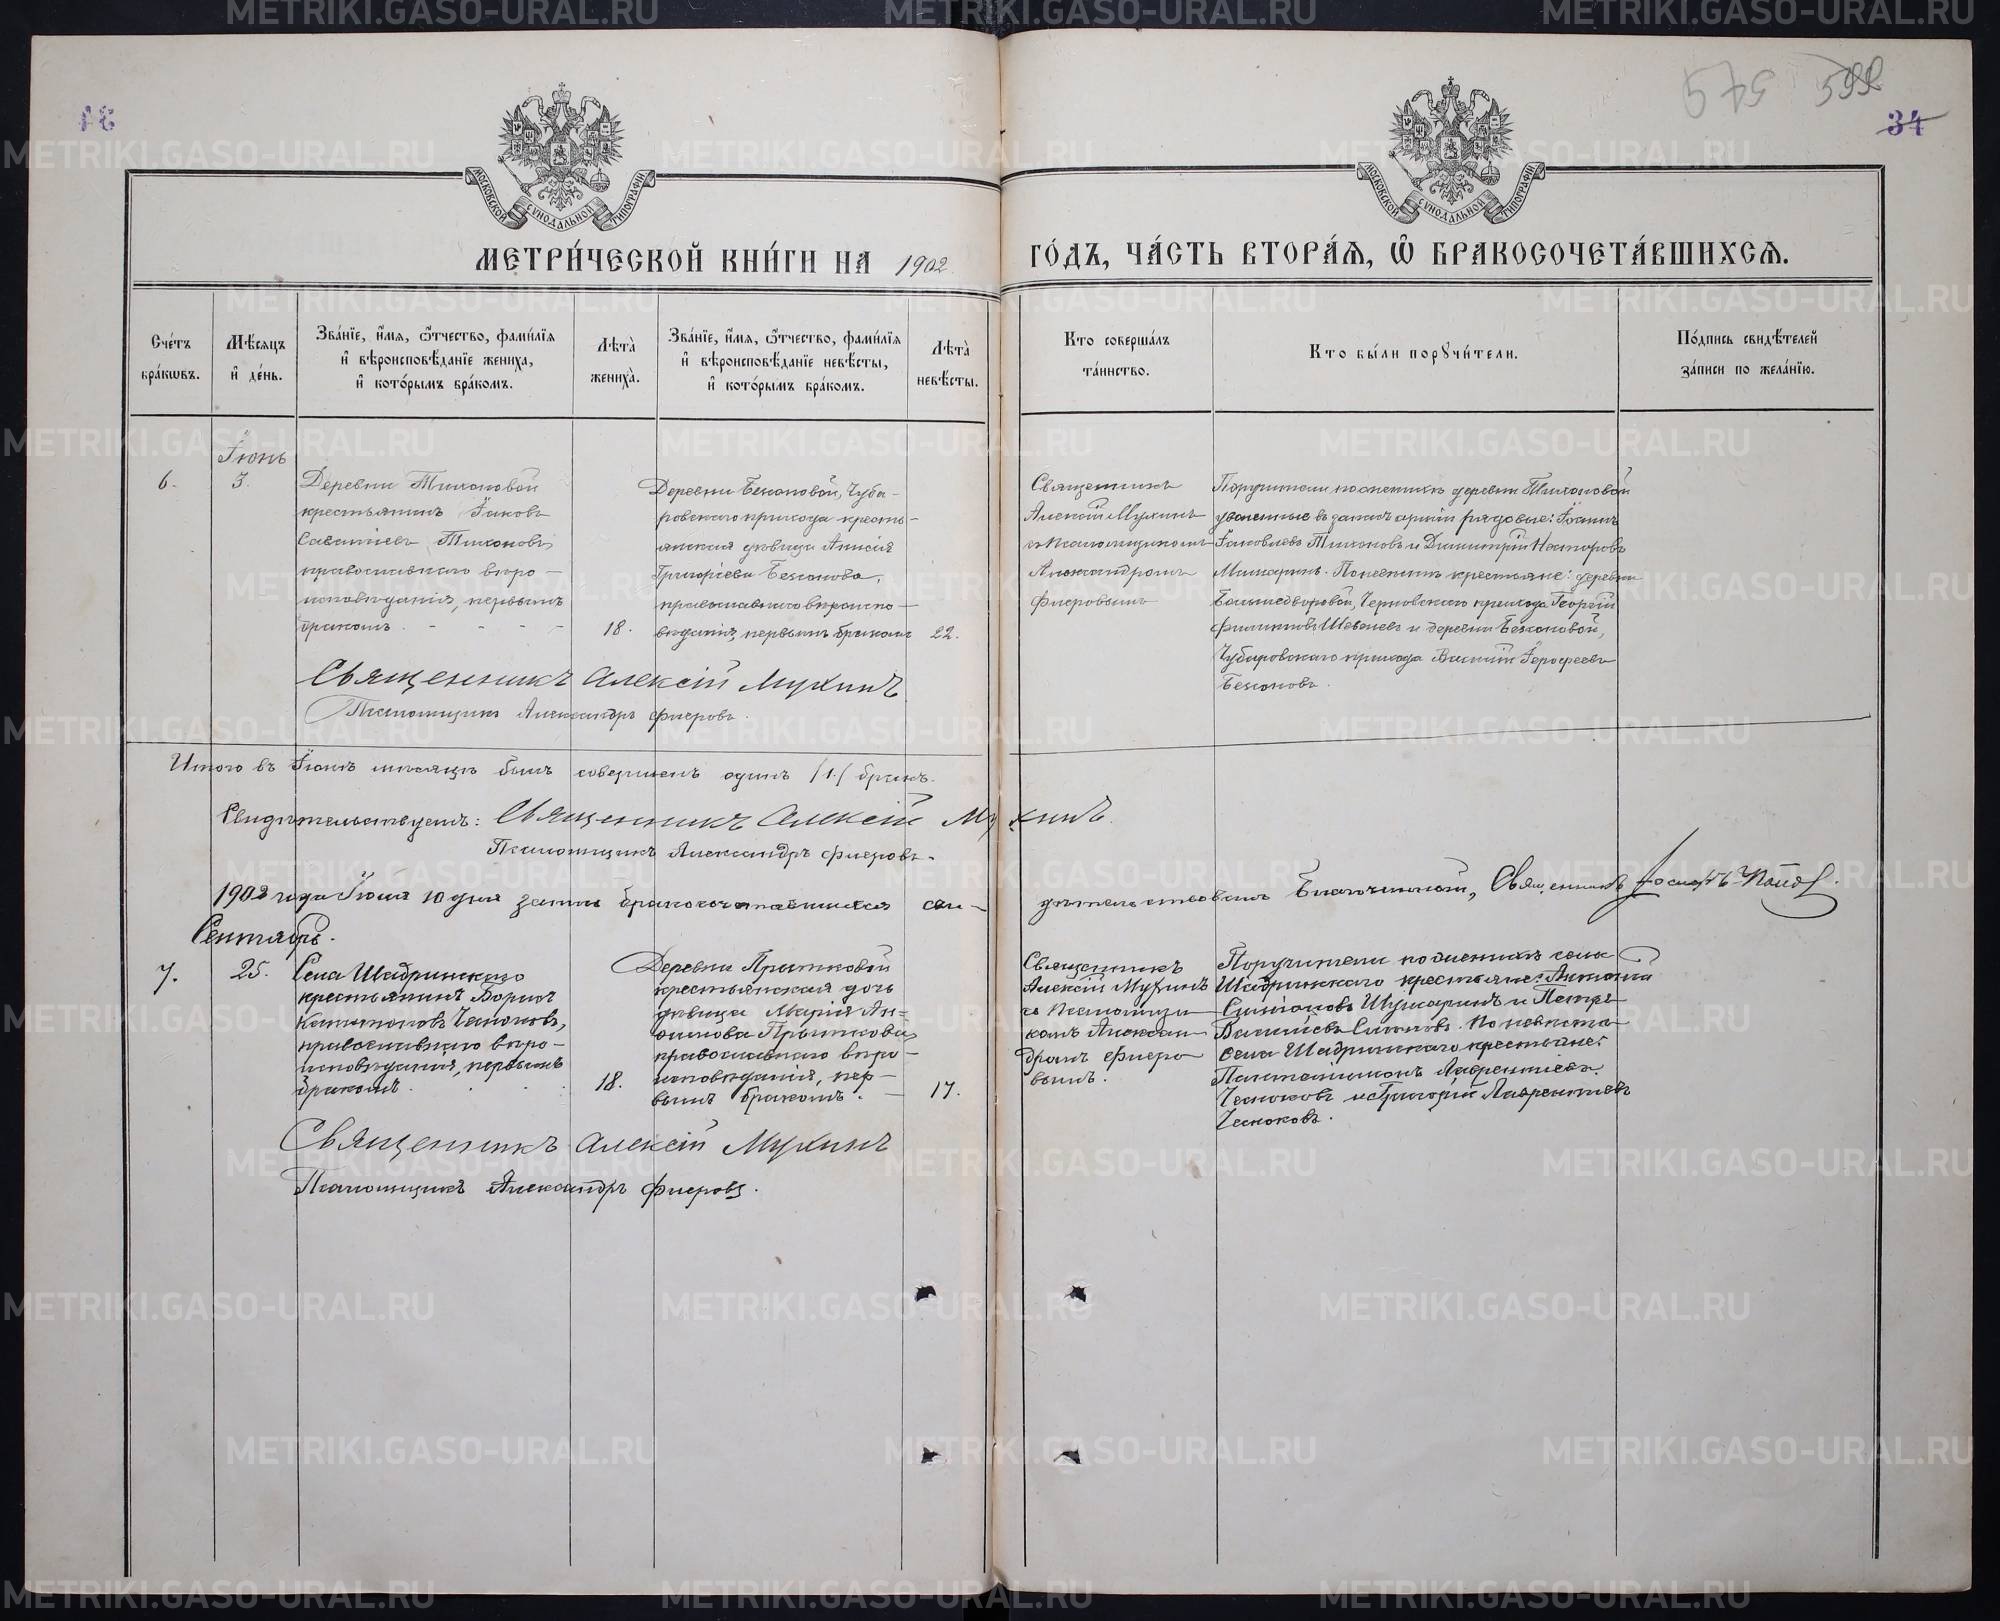 599
579
34
МОСКОВСКОЙ СУНОДАЛЬНОЙ ТИПОГРАФИИ
МОСКОВСКОЙ СУНОДАЛЬНОЙ ТИПОГРАФИИ
МЕТРИ́ЧЕСКОЙ КНИ́ГИ НА 1902 ГО́ДЪ, ЧА́СТЬ ВТОРА́Ѧ, Ѡ҆ БРАКОСОЧЕТА́ВШИХСѦ.
Сче́тъ бра́кѡвъ.
Мѣ́сѧцъ и҆ де́нь.
Зва́нїе, и҆́мѧ, ѻ҆́тчество, фами́лїѧ и҆ вѣроисповѣ́данїе жениха̀, и҆ кото́рымъ бра́комъ.
Лѣта̀ жениха̀.
Зва́нїе, и҆́мѧ, ѻ҆́тчество, фами́лїѧ и҆ вѣроисповѣ́данїе невѣ́сты, и҆ кото́рымъ бра́комъ.
Лѣта̀ невѣ́сты.
Кто соверша́лъ та́инство.
Кто бы́ли порꙋчи́тели.
По́дпись свидѣ́телей за́писи по жела́нїю.
Іюнь
6.
3.
Деревни Тихоновой
крестьянинъ Іаковъ
Савватіевъ Тихоновъ,
православнаго вѣро-
исповѣданія, первымъ
бракомъ.
18.
Деревни Безсоновой, Чуба-
ровскаго прихода кресть-
янская дѣвица Анисія
Григоріева Безсонова,
православнаго вѣроиспо-
вѣданія, первымъ бракомъ
22.
Священникъ
Алексій Мухинъ
съ псаломщикомъ
Александромъ
Флеровымъ
Поручители по женихѣ деревни Тихоновой
уволенные въ запасъ арміи рядовые: Іоаннъ
Іаковлевъ Тихоновъ и Димитрій Несторовъ
По невѣстѣ крестьяне: деревни
Большедворовой, Черновскаго прихода Георгій
Филипповъ Шевелевъ и деревни Безсоновой,
Чубаровскаго прихода Василій Іерофеевъ
Безсоновъ.
Священникъ Алексій Мухинъ
Псаломщикъ Александръ Флеровъ.
Итого въ Іюнѣ мѣсяцѣ былъ совершенъ одинъ /1./ бракъ.
Свидѣтельствуемъ: Священникъ Алексій Мухинъ.
Псаломщикъ Александръ Флеровъ.
1902 года Іюля 10 дня записи бракосочетавшихся сви-
дѣтельствовалъ Благочинный, Священникъ Іосифъ Поповъ.
Сентябрь.
7.
25.
Села Шадринскаго
крестьянинъ Борисъ
Капитоновъ Чесноковъ,
православнаго вѣро-
исповѣданія, первымъ
бракомъ.
18.
Деревни Прытковой
крестьянская дочь
дѣвица Марія Ан-
Прыткова
православнаго вѣро-
исповѣданія, пер-
вымъ бракомъ.
17.
Священникъ
Алексій Мухинъ
съ псаломщи-
комъ Алексан-
дромъ Флеро-
вымъ.
Поручители по женихѣ села
Шадринскаго крестьяне: Антоній
Симоновъ и Петръ
Васильевъ По невѣстѣ
села Шадринскаго крестьяне:
Пантелеимонъ Лаврентіевъ
Чесноковъ и Григорій Лаврентіевъ
Чесноковъ.
Священникъ Алексій Мухинъ
Псаломщикъ Александръ Флеровъ.
METRIKI.GASO-URAL.RU